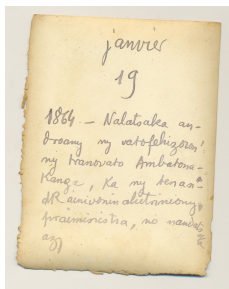 janvier
19
1864. – Nalatsaka an-
droany ny vatofehizoron'
ny tranovato Ambatona-
kanga, ka ny tenan-
dRainivoninahitriniony,
praiministra, no nametraka
azy